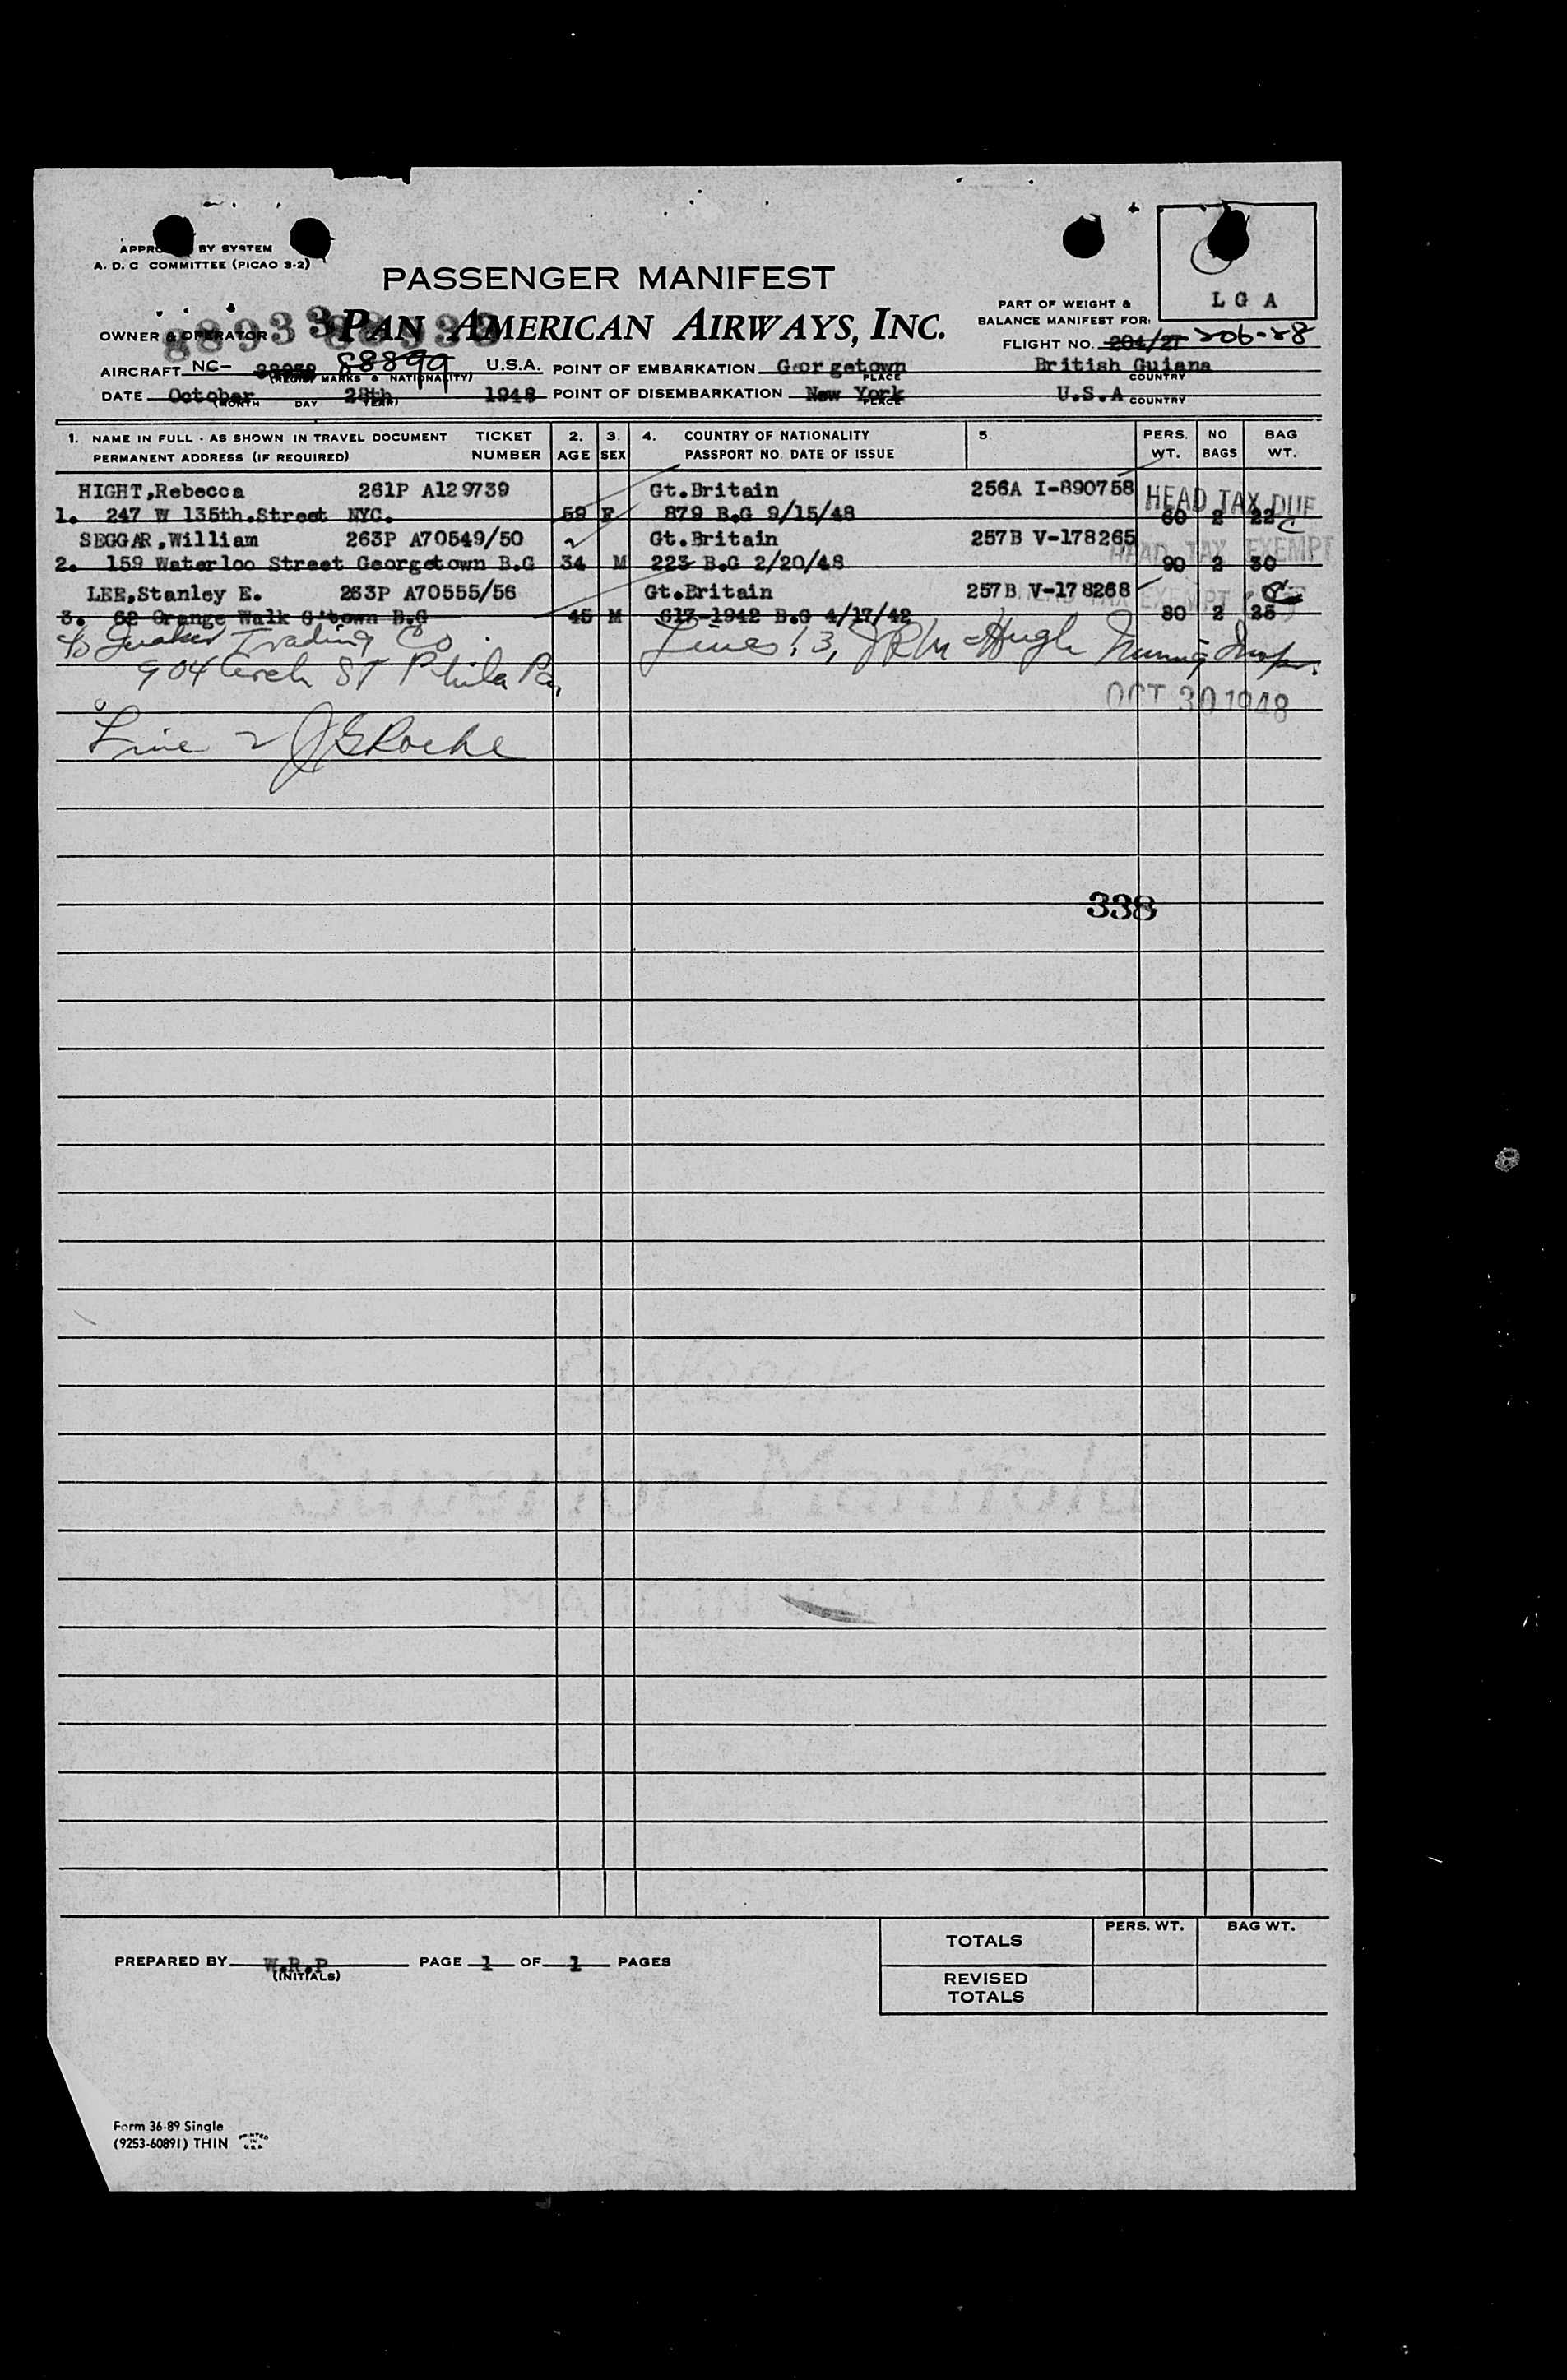 BY SYSTEM
A. D. C COMMITTEE (PICAO 3-2)
PASSENGER MANIFEST
L G A
PART OF WEIGHT &
BALANCE MANIFEST FOR:
OWNER & OPERATOR PAN AMERICAN AIRWAYS, INC.
FLIGHT NO. 204/27 206-28
AIRCRAFT NC- 88899 U.S.A. POINT OF EMBARKATION Georgetown British Guiana
(REGIST MARKS & NATIONALITY) PLACE COUNTRY
DATE October 28th 1948 POINT OF DISEMBARKATION New York U.S.A
(MONTH DAY YEAR) PLACE COUNTRY
1. NAME IN FULL - AS SHOWN IN TRAVEL DOCUMENT TICKET 2. 3. 4. COUNTRY OF NATIONALITY 5. PERS. NO BAG
PERMANENT ADDRESS (IF REQUIRED) NUMBER AGE SEX PASSPORT NO. DATE OF ISSUE WT. BAGS WT.
HIGHT,Rebecca 261P A129739 Gt.Britain 256A I-890758 HEAD TAX DUE
1. 247 W 135th.Street NYC. 59 F 879 B.G 9/15/48 60 2 22
SEGGAR,William 263P A70549/50 Gt.Britain 257B V-178265 HEAD TAX EXEMPT
2. 159 Waterloo Street Georgetown B.G 34 M 223 B.G 2/20/48 90 2 30
LEE,Stanley E. 263P A70555/56 Gt.Britain 257B V-178268 EXEMPT
3. 62 Orange Walk G'town B.G 45 M 617-1942 B.G 4/17/42 80 2 25
Quaker Trading Co. Lines 1, 3, McHugh
904 Arch ST Phila Pa,
OCT 30 1948
Line 2 Roche
338
TOTALS PERS. WT. BAG WT.
PREPARED BY W.R.P PAGE 1 OF 1 PAGES
(INITIALS)
REVISED
TOTALS
Form 36-89 Single
(9253-60891) THIN PRINTED IN U.S.A.